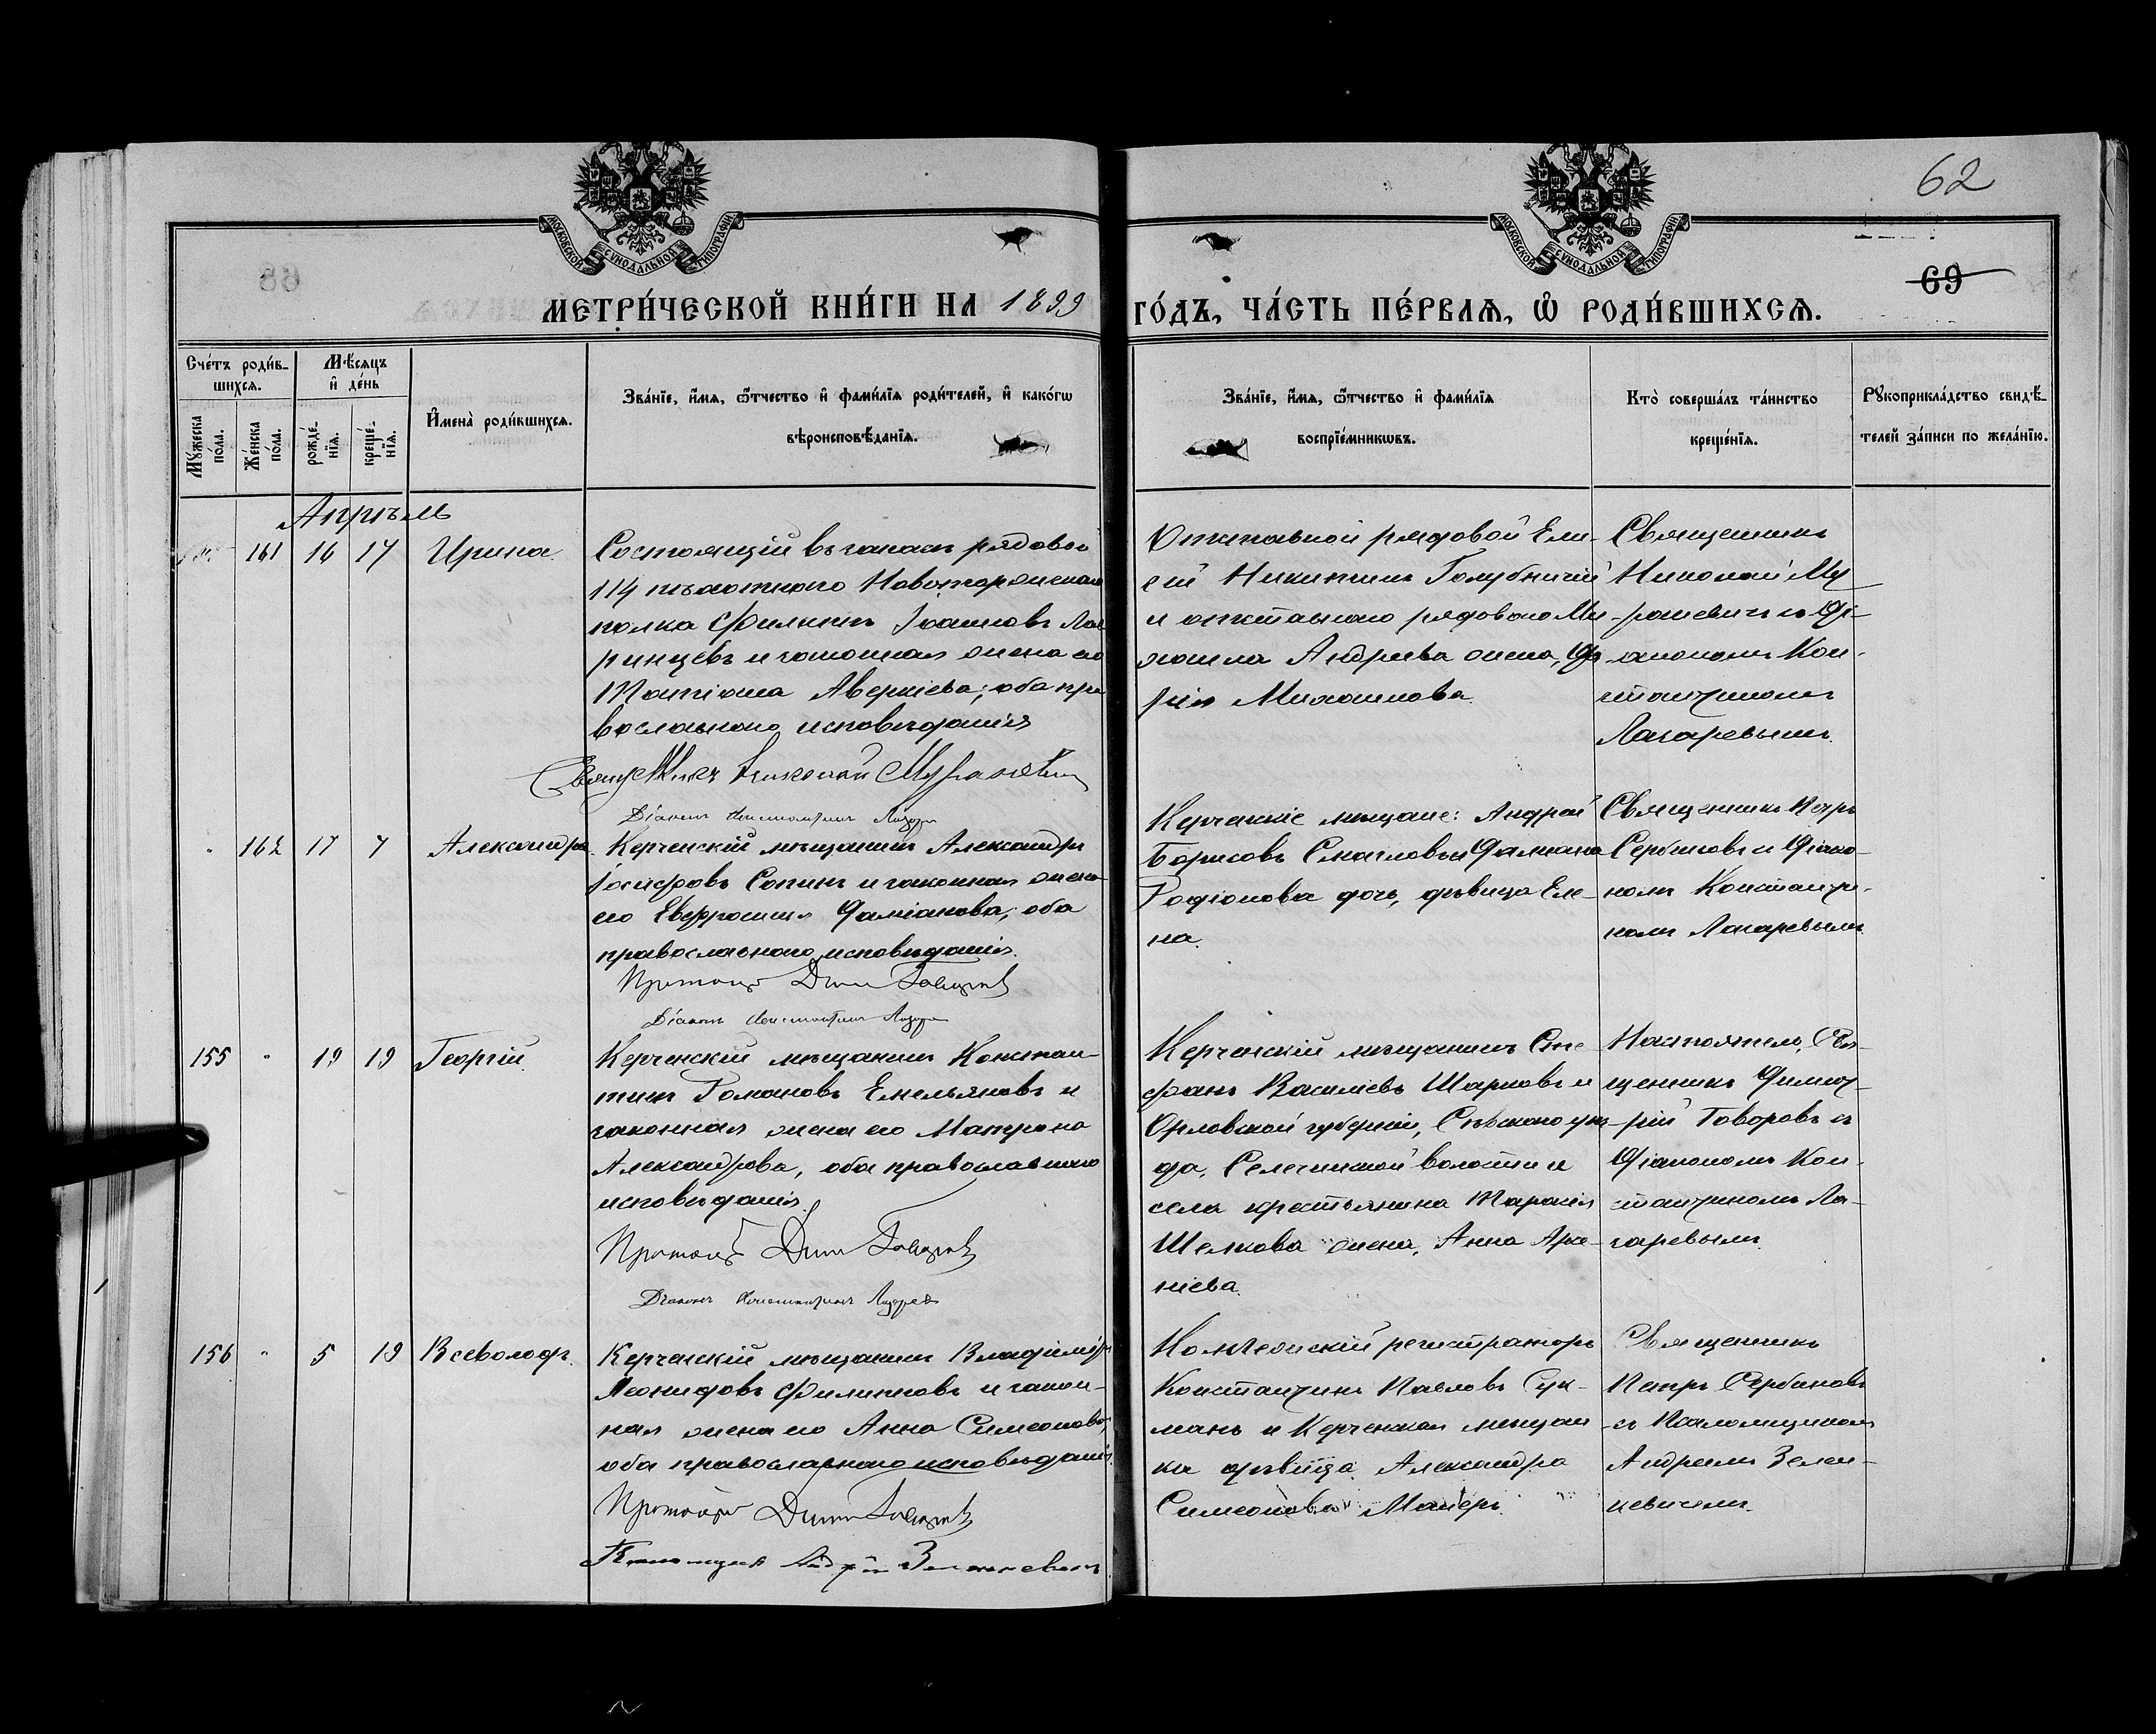 62
69
МОСКОВСКОЙ СѴНОДАЛЬНОЙ ТИПОГРАФІИ
МОСКОВСКОЙ СѴНОДАЛЬНОЙ ТИПОГРАФІИ
МЕТРИ́ЧЕСКОЙ КНИ́ГИ НА 1899
ГО́ДЪ, ЧА́СТЬ ПЕ́РВАѦ, Ѽ РОДИ́ВШИХСѦ.
Сче́тъ роди́в-
шихсѧ.
Мꙋ́жеска
по́ла.
Же́нска
по́ла.
Мѣ́сѧцъ
и҆ де́нь
рожде́-
нїѧ.
креще́-
нїѧ.
И҆мена̀ роди́вшихсѧ.
Зва́нїе, и҆́мѧ, ѻ҆́тчество и҆ фами́лїѧ роди́телей, и҆ како́гѡ
вѣроисповѣ́данїѧ.
Зва́нїе, и҆́мѧ, ѻ҆́тчество и҆ фами́лїѧ
воспрїе́мникѡвъ.
Кто̀ соверша́лъ та́инство
креще́нїѧ.
Рꙋкоприкла́дство свидѣ́-
телей за́писи по жела́нїю.
Апрѣль
161 16 17 Ирина.
Состоящій въ запасѣ рядовой
114 пѣхотнаго Новоторжскаго
полка Филиппъ Іоанновъ
и законная жена его
Татіана Аверкіева; оба пра-
вославнаго исповѣданія
Священникъ Николай
Діаконъ Константинъ Лазаревъ
Отставной рядовой Ели-
сей Никитинъ Голубничій
и отставного рядового Ми-
хаила Андреева жена, Да-
рія Михайлова.
Священникъ
Николай Му-
рашевичъ съ Ді-
акономъ Кон-
стантиномъ
Лазаревымъ.
" 162 17 7 Александра.
Керченскій мѣщанинъ Александръ
Іосифовъ Сопинъ и законная жена
его Евфросинія Даміанова; оба
православнаго исповѣданія.
Протоіерей Дим. Говоровъ
Діаконъ Константинъ Лазаревъ
Керченскіе мѣщане: Андрей
Борисовъ и Даміана
Родіонова дочь, дѣвица Еле-
на.
Священникъ Петръ
Сербиновъ и Діако-
номъ Константи-
номъ Лазаревымъ.
155 " 19 19 Георгій.
Керченскій мѣщанинъ Констан-
тинъ Романовъ Емельяновъ и
законная жена его Матрона
Александрова, оба православнаго
исповѣданія.
Протоіерей Дим. Говоровъ
Діаконъ Константинъ Лазаревъ
Керченскій мѣщанинъ Сте-
фанъ Василіевъ Шарковъ и
Орловской губерніи, Сѣвскаго уѣз-
да, Селечинской волости и
села крестьянина Тарасія
Шелкова жена, Анна Арсе-
ніева.
Настоятель, Свя-
щенникъ Димит-
рій Говоровъ съ
Діакономъ Кон-
стантиномъ Ла-
заревымъ.
156 " 5 19 Всеволодъ.
Керченскій мѣщанинъ Владиміръ
Леонидовъ Филипповъ и закон-
ная жена его Анна Симеонова,
оба православнаго исповѣданія.
Протоіерей Дим. Говоровъ
Псаломщикъ Андрей Зеленкевичъ
Коллежскій регистраторъ
Константинъ Павловъ Сук-
манъ и Керченская мѣщан-
ка дѣвица Александра
Симеонова Майеръ.
Священникъ
Петръ Сербиновъ
съ Псаломщикомъ
Андреемъ Зелен-
кевичемъ.